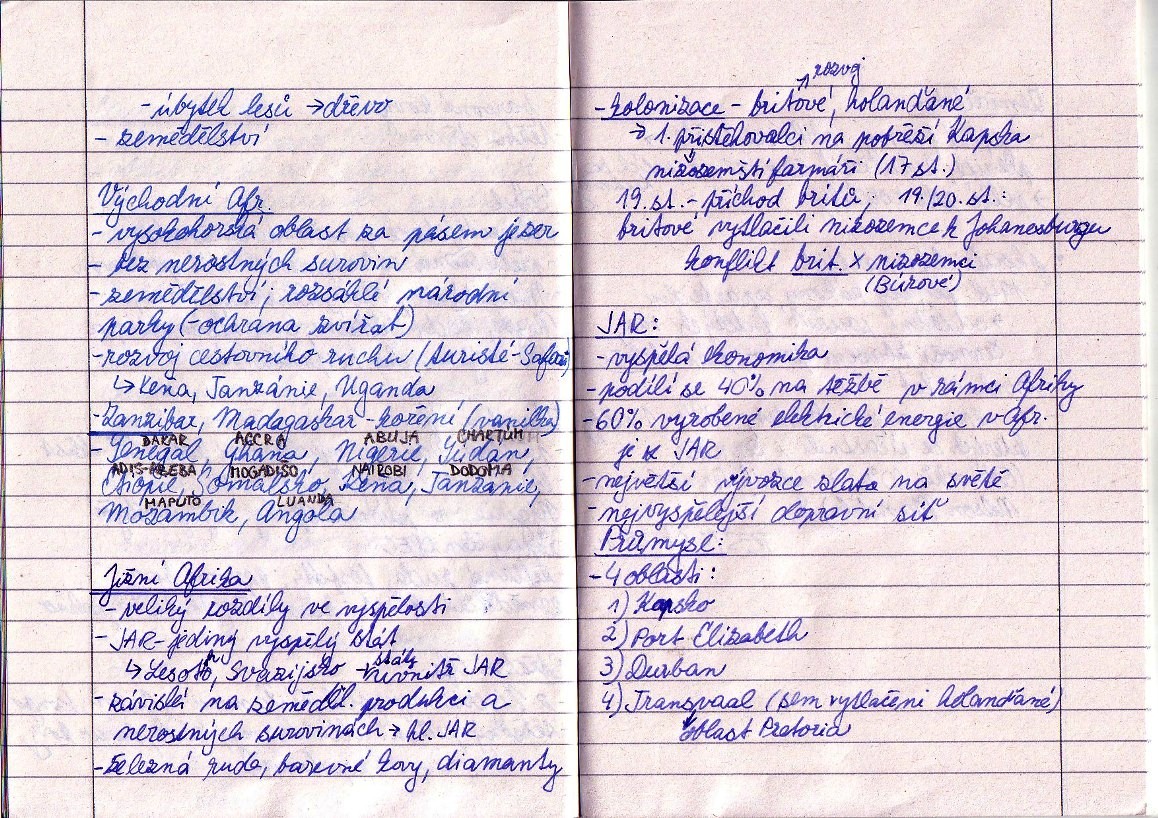 - úbytek lesů → dřevo
- zemědělství
Východní Afr.
- vysokohorská oblast za pásem jezer
- bez nerostných surovin
- zemědělství; rozsáhlé národní
parky (-ochrana zvířat)
- rozvoj cestovního ruchu (turisté - Safari)
↳ Keňa, Tanzánie, Uganda
- Zanzibar, Madagaskar - koření (vanilka)
DAKAR ACCRA ABUJA CHARTÚM
Senegal, Ghana, Nigerie, Súdán,
ADIS-ABEBA MOGADIŠO NAIROBI DODOMA
Etiopie, Somálsko, Keňa, Tanzanie,
MAPUTO LUANDA
Mozambik, Angola
Jižní Afrika
- veliký rozdíly ve vyspělosti
- JAR - jediný vyspělý stát
↳ Lesotho, Svazijsko → státy uvnitř JAR
- závislí na zeměděl. produkci a
nerostných surovinách → hl. JAR
- železná ruda, barevné kovy, diamanty
rozvoj
- kolonizace - britové, holanďané
→ 1. přistěhovalci na pobřeží Kapska
nizozemští farmáři (17 st.)
19. st. - příchod britů; 19./20. st.:
britové vytlačili nizozemce k Johanesburgu
konflikt brit. x nizozemci
(Búrové)
JAR:
- vyspělá ekonomika
- podílí se 40% na těžbě v rámci Afriky
- 60% vyrobené elektrické energie v Afr.
je z JAR
- největší vývozce zlata na světě
- nejvyspělejší dopravní síť
Průmysl:
- 4 oblasti:
1) Kapsko
2) Port Elizabeth
3) Durban
4) Transvaal (sem vytlačeni holanďané)
oblast Pretoria